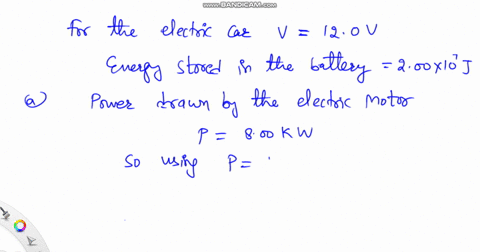 WWW.BANDICAM.COM
for the electric car V = 12.0 V
Energy stored in the battery = 2.00×10⁷ J
a) Power drawn by the electric Motor
P = 8.00 KW
So using P =